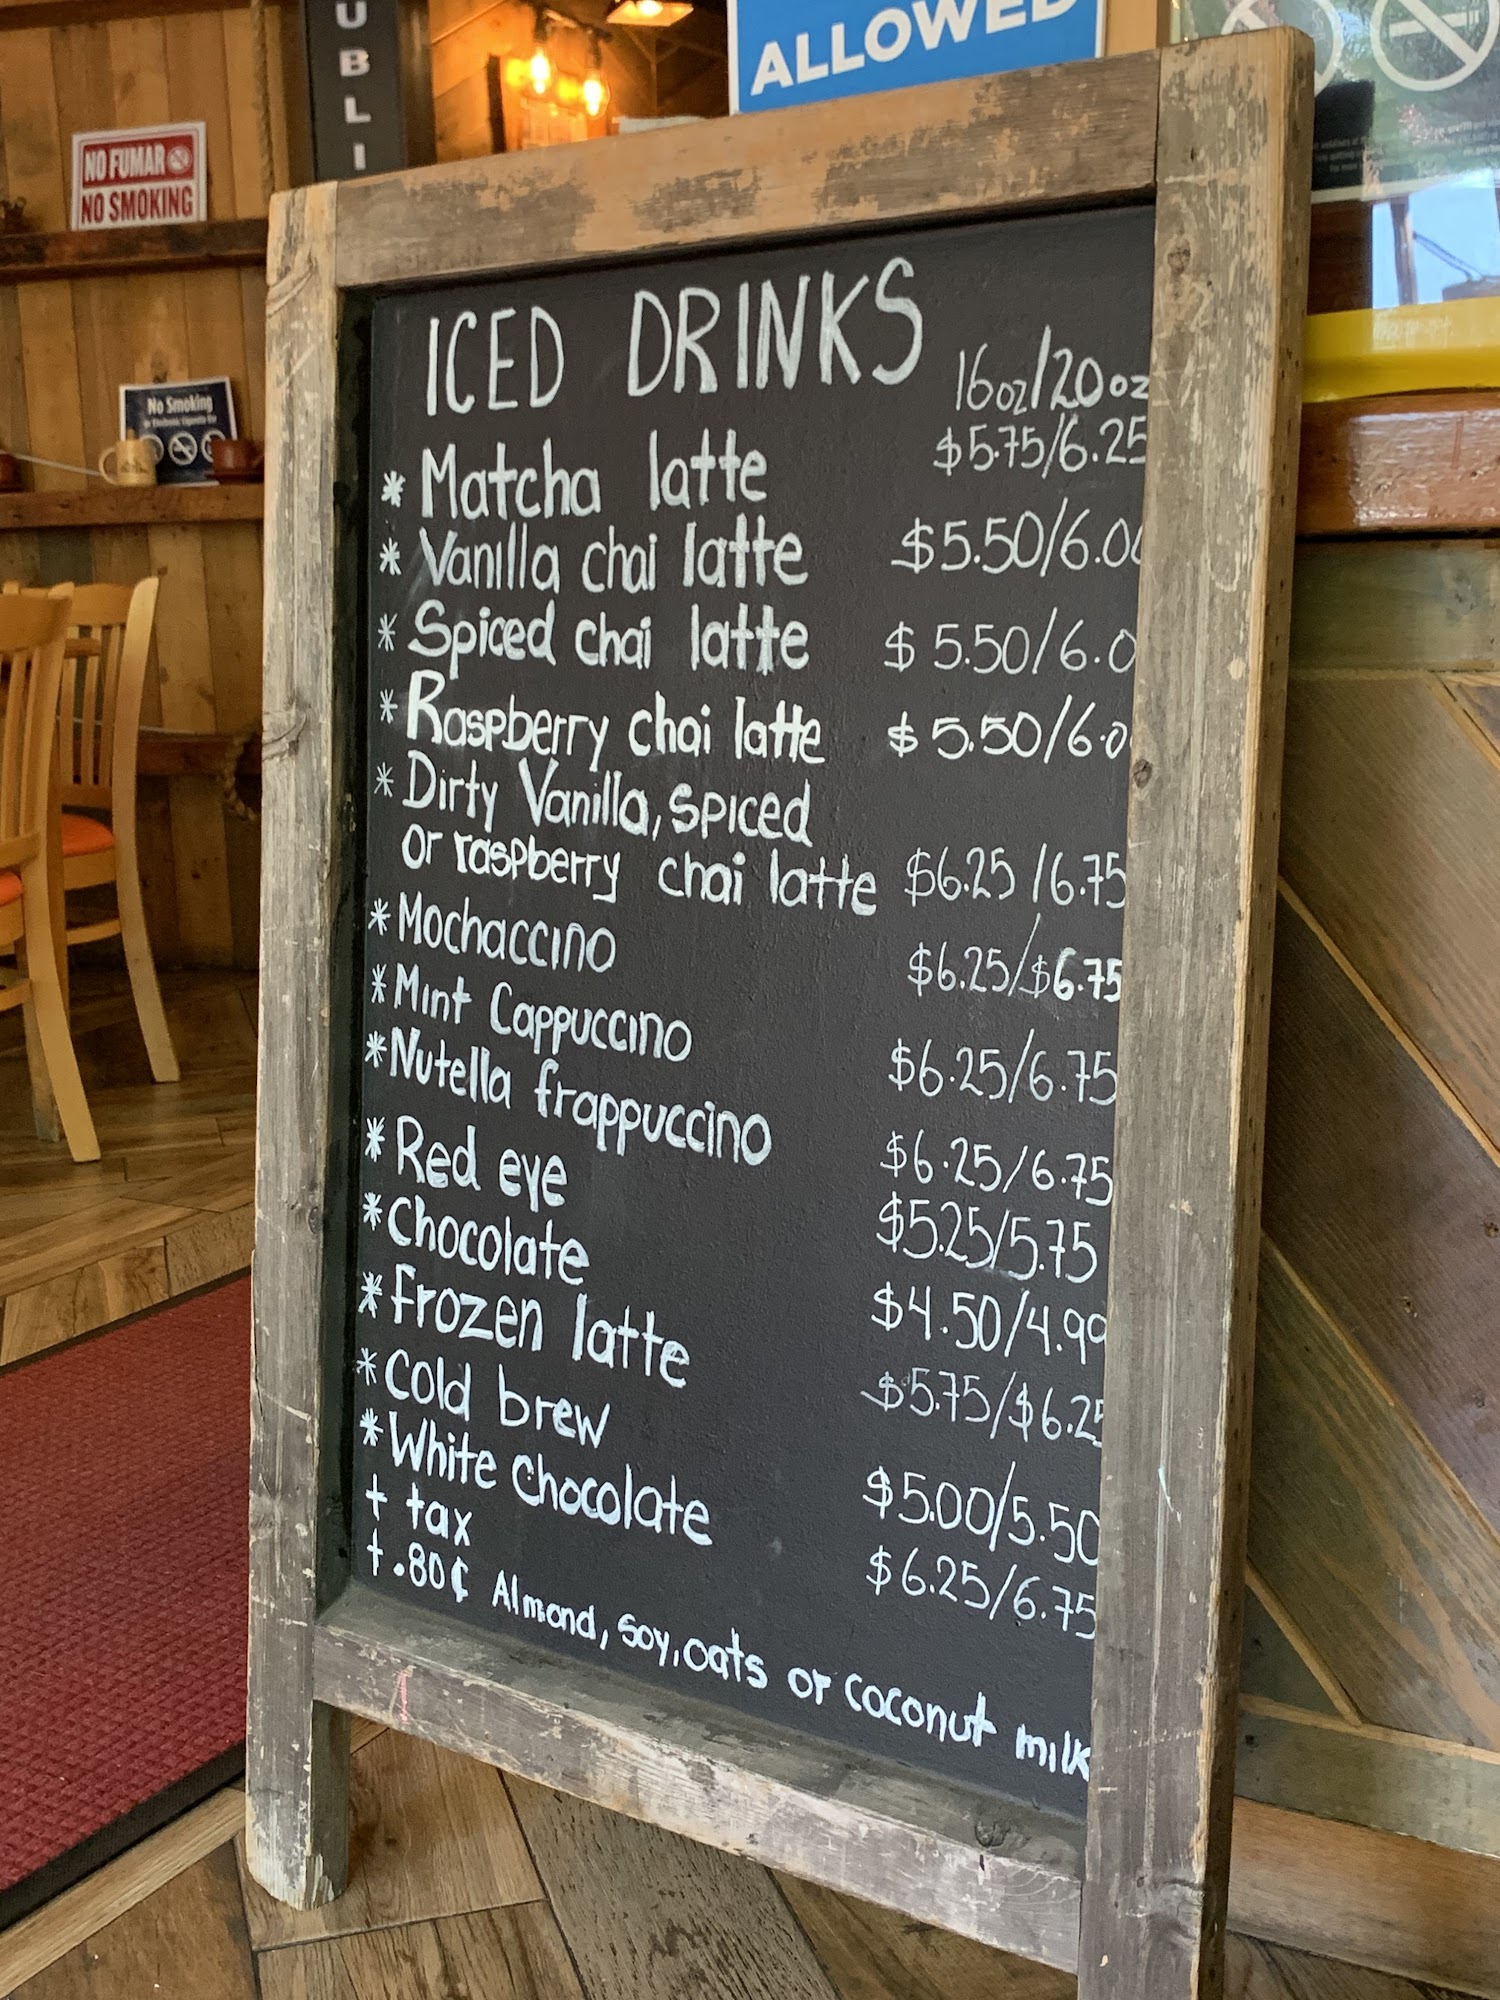 UBLI
ALLOWED
NO FUMAR
NO SMOKING
No Smoking
ICED DRINKS 16oz/20oz
* Matcha latte $5.75/6.25
* Vanilla chai latte $5.50/6.00
* Spiced chai latte $5.50/6.0
* Raspberry chai latte $5.50/6.0
* Dirty Vanilla, spiced
or raspberry chai latte $6.25/6.75
* Mochaccino $6.25/$6.75
* Mint Cappuccino $6.25/6.75
* Nutella frappuccino $6.25/6.75
* Red eye $5.25/5.75
* Chocolate $4.50/4.99
* Frozen latte $5.75/$6.25
* Cold brew $5.00/5.50
* White Chocolate $6.25/6.75
+ tax
+ .80¢ Almond, soy, oats or coconut milk